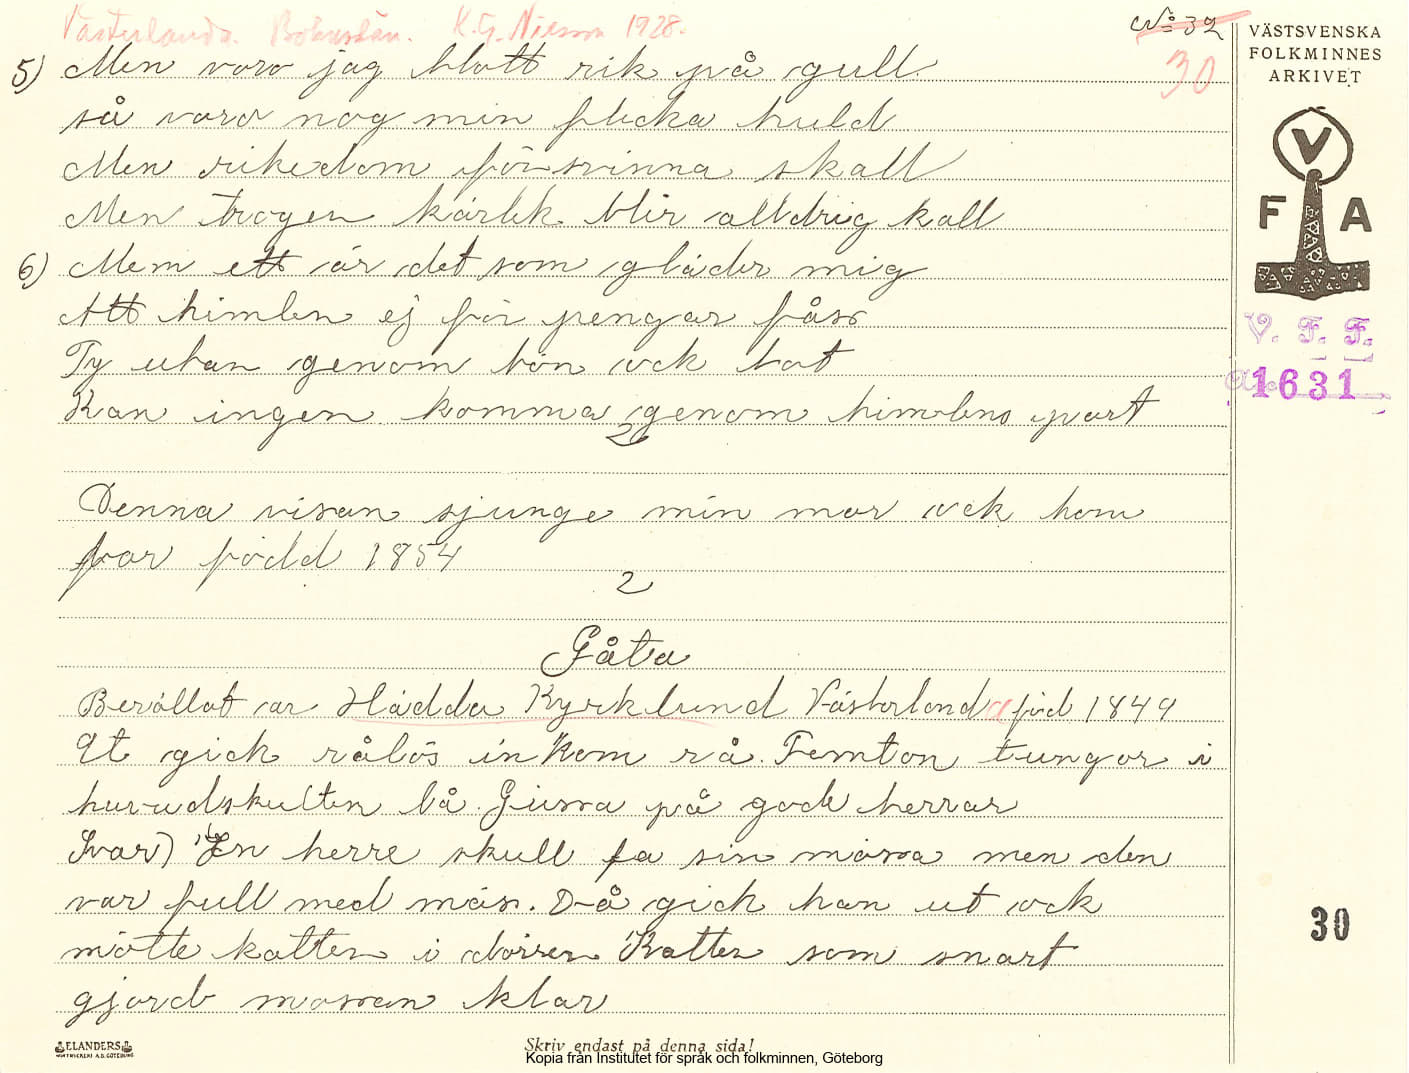 Västerlanda. Bohuslän. K.G. Nilsson 1928.
No 32
30
VÄSTSVENSKA
FOLKMINNES
ARKIVET
V
F A
V. F. F.
1631
5) Men voro jag blott rik på gull
så voro nog min flicka huld
Men rikedom försvinna skall
Men trogen kärlek blir alldrig kall
6) Mem ett är det som gläder mig
Att himlen ej för pengar fåss
Ty utan genom bön ock bot
Kan ingen komma genom himlens port
2
Denna visan sjunge min mor ock hom
var född 1854
2
Gåta
Berällat av Hädda Kyrklund Västerlanda föd 1849
Ut gick rålös in kom rå. Femton tungor i
huvudskulten lå. Gissa på gode herrar
Svar) En herre skull fa sin mössa men den
var full med möss. Då gick han ut ock
mötte katten i dörren Katten som snart
gjorde mossan klar
30
ELANDERS
BOKTRYCKERI A.B. GÖTEBORG
Skriv endast på denna sida!
Kopia från Institutet för språk och folkminnen, Göteborg